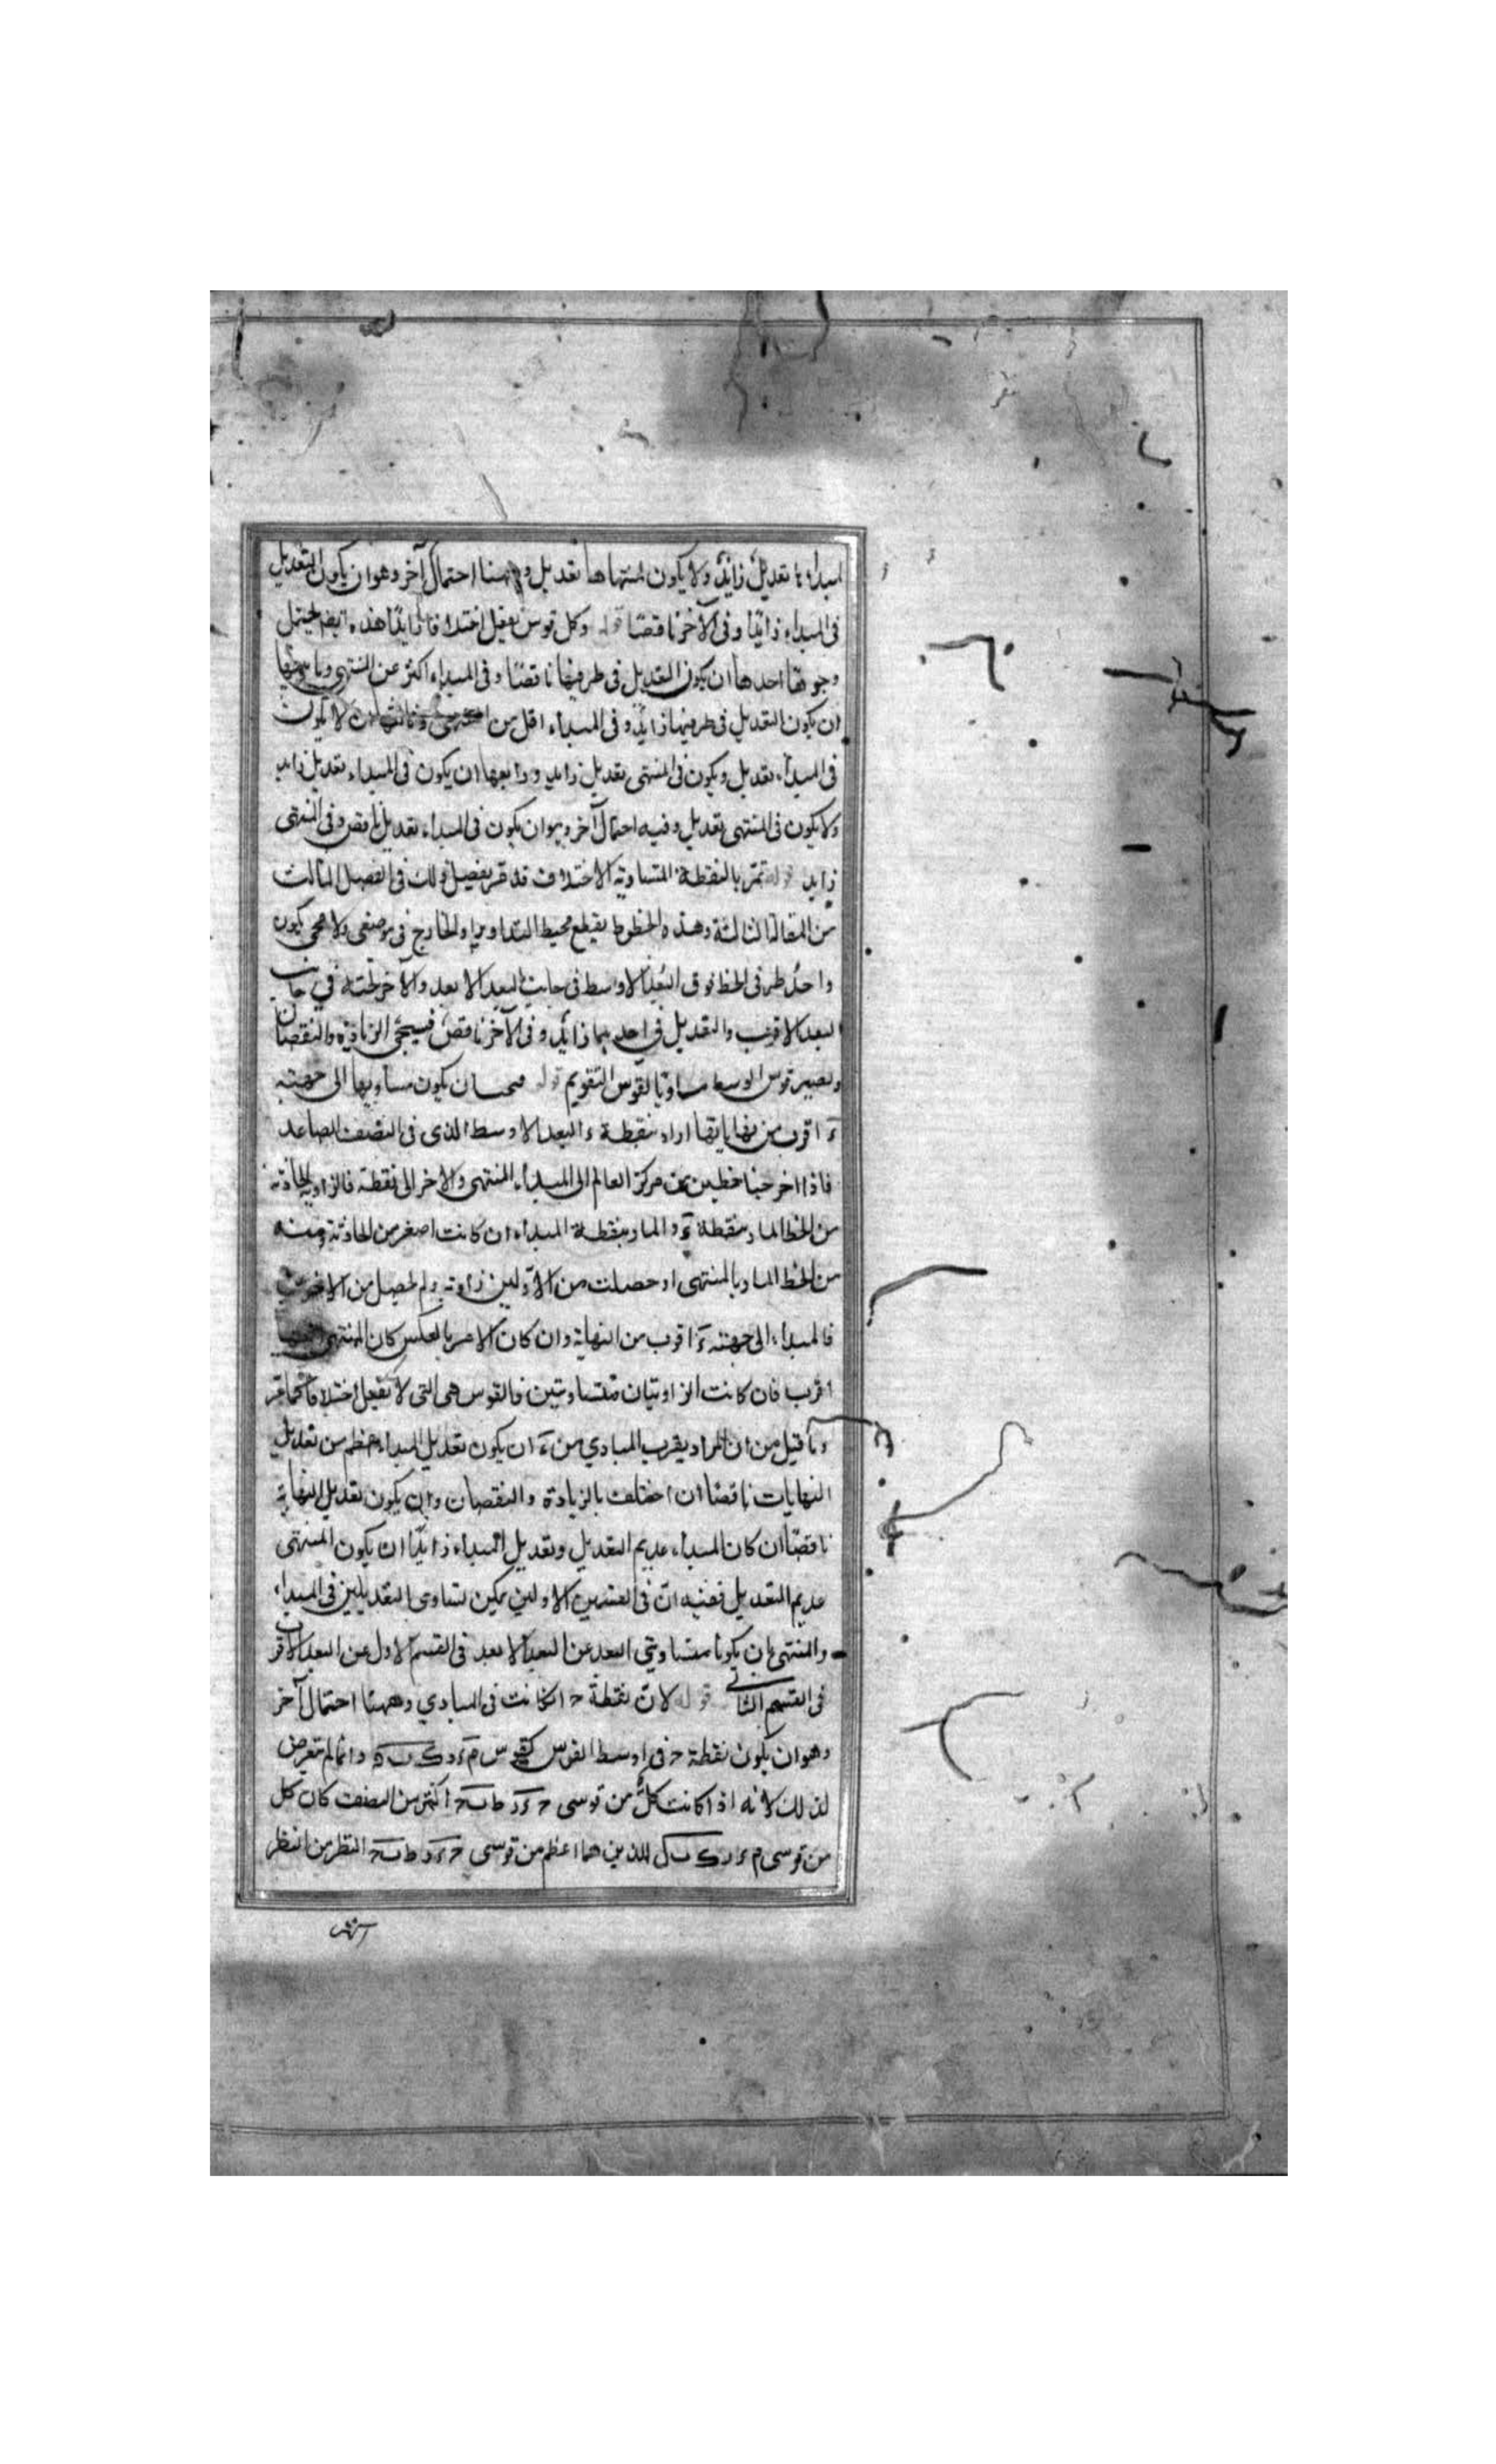 لمبداءها تعديل زايد ولا يكون لمنتهاها تعديل وههنا احتمال آخر وهو ان يكون التعديل
فى المبداء زائدًا وفى الآخر ناقصًا قوله وكل قوس يفعل اختلافا زايدًا هذه ايضا يحتمل
وجوها احدها ان يكون التعديل فى طرفيها ناقصًا وفى المبداء اكثر عن المنتهى وثانيها
ان يكون التعديل فى طرفيها زايد وفى المبداء اقل من المنتهى وثالثها ان لا يكون
فى المبداء تعديل ويكون فى المنتهى تعديل زايد ورابعها ان يكون فى المبداء تعديل زايد
ولا يكون فى المنتهى تعديل وفيه احتمال آخر وهو ان يكون فى المبداء تعديل ناقص وفى المنتهى
زايد قوله تمر بالنقطة المتساوية الاختلاف قد مر تفصيل ذلك فى الفصل الثالث
من المقالة الثالثة وهذه الخطوط يقطع محيط التداوير او الخارج فى موضعين لا محى يكون
واحد طرفى الخط فوق البعد الاوسط فى جانب البعد الابعد والآخر تحته فى جانب
البعد الاقرب والتعديل فى احديهما زائد وفى الآخر ناقص فسيجئ الزيادة والنقصان
ويصير قوس الوسط مساويا لقوس التقويم قوله يكون مساويها الى جهة
ءَ اقرب من نهاياتها اراد بنقطة ء البعد الاوسط الذى فى النصف الصاعد
فاذا اخرجنا خطين من مركز العالم الى المبداء المنتهى والاخر الى نقطة فالزاوية الحادثة
من الخط المار بنقطة ءَ والمار بنقطة المبداء ان كانت اصغر من الحادثة ومنه
من الخط المار بالمنتهى او حصلت من الاولين زاوية ولم يحصل من الاخرين
فالمبداء الى جهة ءَ اقرب من النهاية وان كان الامر بالعكس كان المنتهى
اقرب فان كانت الزاويتان متساويتين فالقوس هى التى لا تفعل اختلافا كما مر
وما قيل من ان المراد بقرب المبادي من ءَ ان يكون تعديل المبداء اعظم من تعديل
النهايات ناقصًا ان اختلف بالزيادة والنقصان وان يكون تعديل النهاية
ناقصًا ان كان المبداء عديم التعديل وتعديل المبداء زايدًا ان يكون المنتهى
عديم التعديل ففيه ان فى القسمين الاولين يمكن تساوى التعديلين فى المبداء
والمنتهى بان يكونا متساويتي البعد عن البعد الابعد فى القسم الاول عن البعد الاقرب
فى القسم الثانى قوله لان نقطة ح اذا كانت فى المبادي وههنا احتمال آخر
وهو ان يكون نقطة ح فى اوسط القوس كقوس وانما لم يتعرض
لذلك لانه اذا كانت كل من قوسى اكثر من النصف كان كل
من قوسى اللذين هما اعظم من قوسى النظر من النظر